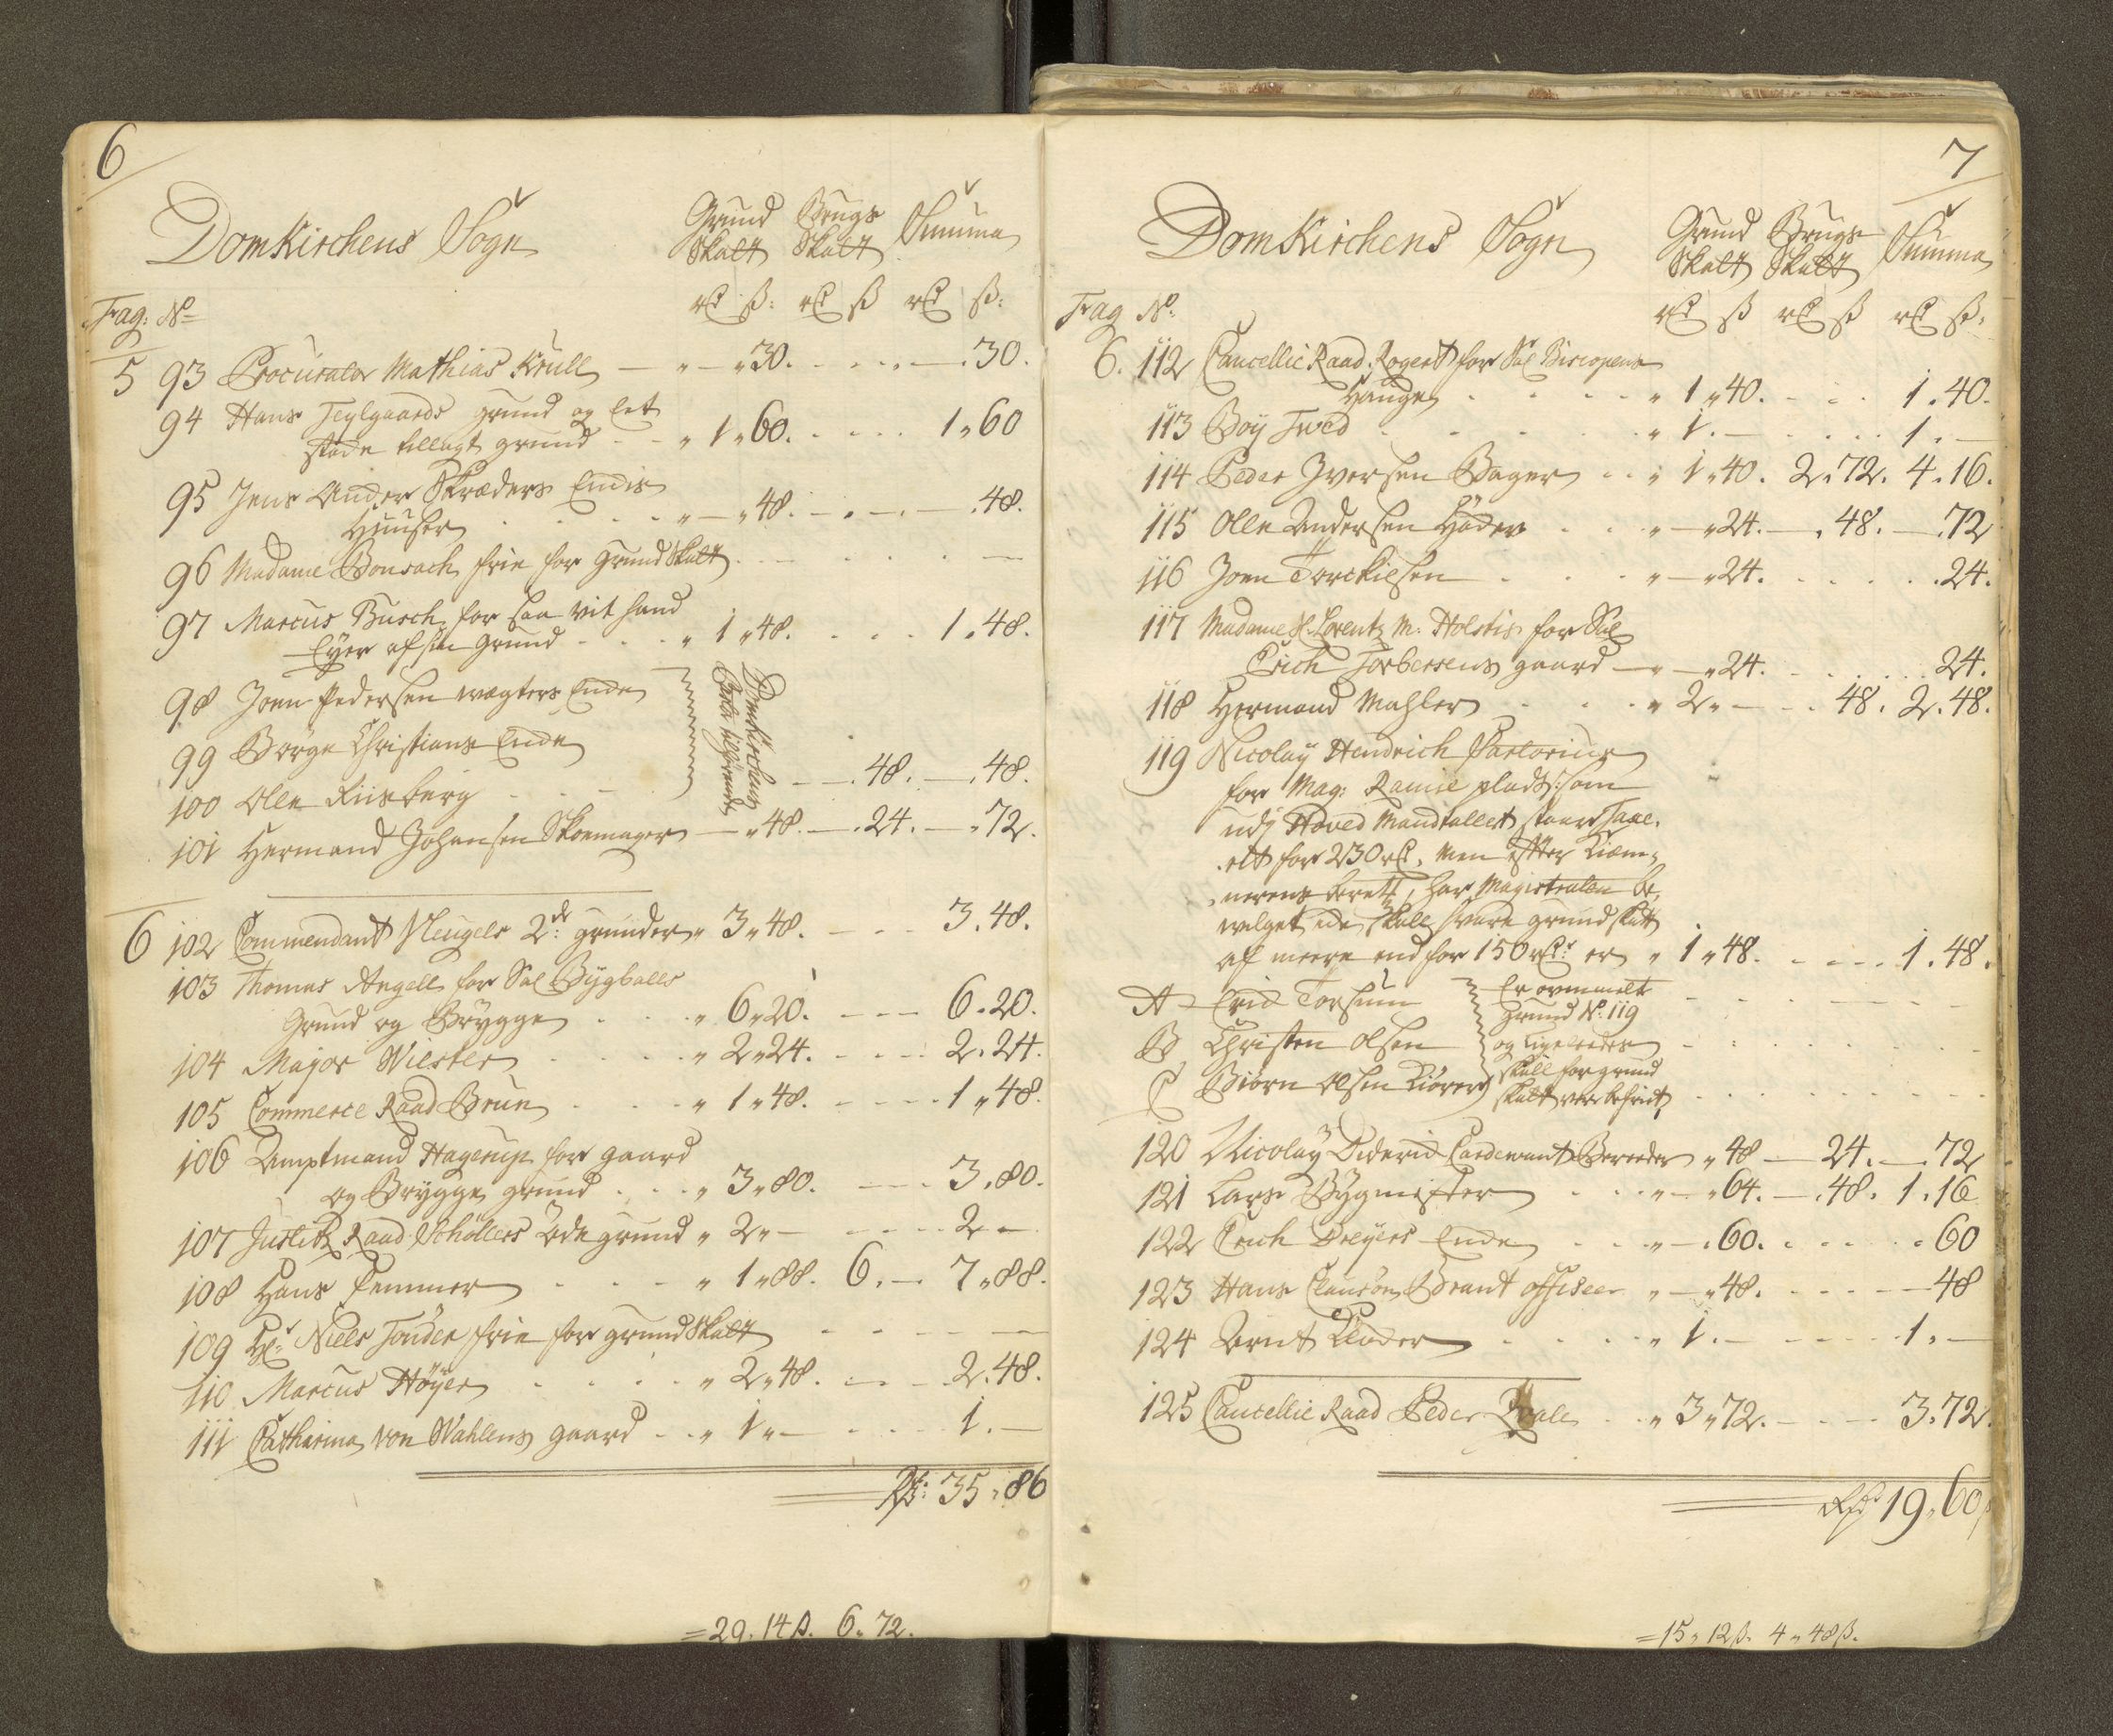 6
DomKirchens Sogn
Grund Skatt Brugs Skatt Summa
rd ß: rd ß rd ß:
Frag: No
5 93 Procurator Mathias Krull — " — " 30. — . 30.
94 Hans Teylgaards grund og Eet
støde tillagt grund " 1 " 60. 1 " 60
95 Jens Ander Skræders Endis
Huuser " — " 48. — . 48.
96 Madame Bonsach frie for Grund Skatt —
97 Marcus Busch for saa vit hand
Eyer af sin Grund " 1 " 48. 1 . 48.
98 Joen Pedersen wægters Ende
Domkirchens
99 Børge Christians Ende
100 Olle Riisberg — . 48. — . 48.
101 Hermand Johansen Skoemager — " 48. — . 24. — " 72.
6 102 Commendant Neugels 2de grunder " 3 " 48. 3 . 48.
103 Thomas Angell for Sal Bygballs
Grund og Brygge " 6 " 20. 6 . 20.
104 Major Wiester " 2 " 24. 2 . 24.
105 Commerce Raad Brun " 1 " 48. 1 " 48.
106 Amptmand Hagerup for gaard
og Brygge grund " 3 " 80. 3 . 80.
107 Justitz Raad Schöllers Øde grund " 2 " — 2 —
108 Hans Hemmer " 1 " 88. 6 . — 7 " 88.
109 Hr Niels Tonder frie for grund Skatt —
110 Marcus Høyer " 2 " 48. 2 . 48.
111 Catharina von Wahlens gaard " 1 " — 1 . —
Rd: 35 " 86
= 29 . 14 ß. 6 " 72.
7
DomKirchens Sogn
Grund Skatt Brugs Skatt Summa
rd ß rd ß rd ß:
Frag No
6. 112 Cancellie Raad Rogert for Sal Biscopens
Hauge " 1 " 40. 1 . 40.
113 Boy Tved " 1 . — 1 . —
114 Peder Iversen Bager " 1 " 40. 2 . 72. 4 . 16.
115 Olle Andersen Høder " — " 24. — . 48. — . 72
116 Joen Torckilsen " — " 24. . 24.
117 Madame Sl. Lorentz M. Holstis for Sal
Erich Torbersens gaard — " — " 24. 24.
118 Hermand Mahler " 2 " — 48. 2 . 48.
119 Nicolay Hendrich Partorius
for Mag: Ramie plads: som
udj Hoved Mandtallet staar Taxe-
rett for 230 rd, men efter Kiem-
nerens berett, har Magistraten be-
wilget ide skall svare grund skatt
af meere end for 150 rdr er " 1 " 48. 1 . 48.
A Erid Torsum Er ommelte
grund No: 119
B Christen Olsen og Ligeleedes
skall for grund
C Biörn Olsen Kiører skatt være befriet
120 Nicolay Diderid Cardewant Bereeder " 48 — 24. — 72
121 Lars Bygmester " — " 64. — . 48. 1 . 16
122 Erich Dreyers Ende " — . 60. " 60
123 Hans Clausøn Brant officeer " — " 48. — 48
124 Arnt Skoder " 1 . — 1 . —
125 Cancellie Raad Peder " 3 " 72. 3 . 72.
Rd 19 . 60
= 15 " 12 ß. 4 " 48 ß.